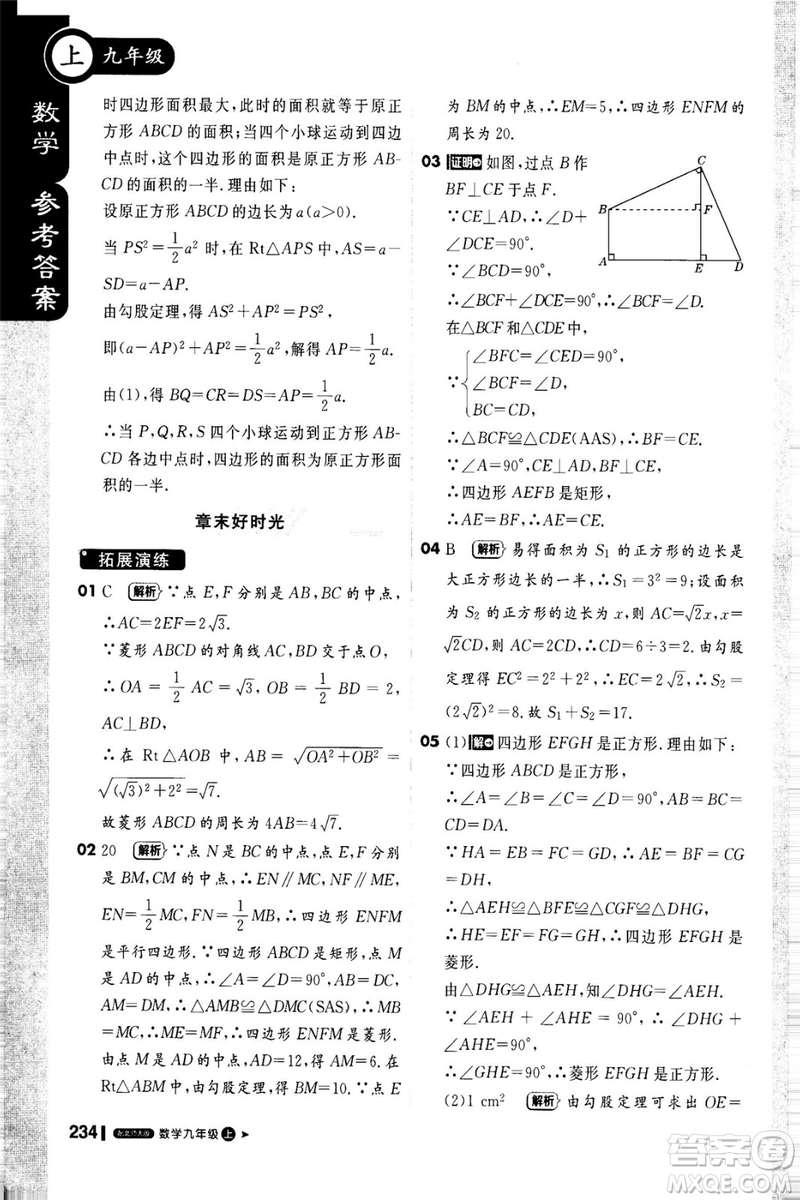 上 九年级
数学 参考答案
时四边形面积最大,此时的面积就等于原正
方形 ABCD 的面积;当四个小球运动到四边
中点时,这个四边形的面积是原正方形 AB-
CD 的面积的一半.理由如下:
设原正方形 ABCD 的边长为 a(a>0).
当 PS²=1/2a² 时,在 Rt△APS 中,
AS=a-AP.
由勾股定理,得 AS²+AP²=PS²,
即(a-AP)²+AP²=1/2a²,解得 AP=1/2a.
由(1),得 BQ=CR=DS=AP=1/2a.
∴当 P,Q,R,S 四个小球运动到正方形 ABCD
各边中点时,四边形的面积为原正方形面积
的一半.
章末好时光
拓展演练
01 C 解析 ∵点 E,F 分别是 AB,BC 的中点,
∴AC=2EF=2√3.
∵菱形 ABCD 的对角线 AC,BD 交于点 O,
∴OA=1/2AC=√3,OB=1/2BD=2,
AC⊥BD,
∴在 Rt△AOB 中,AB=√(OA²+OB²)=
√((√3)²+2²)=√7.
故菱形 ABCD 的周长为 4AB=4√7.
02 20 解析 ∵点 N 是 BC 的中点,点 E,F 分别
是 BM,CM 的中点,∴EN∥MC,FN∥MB,
EN=1/2MC,FN=1/2MB,∴四边形 ENFM
是平行四边形.∵四边形 ABCD 是矩形,点 M
是 AD 的中点,∴∠A=∠D=90°,AB=DC,
AM=DM,∴△AMB≌△DMC(SAS),∴MB
=MC,∴ME=MF,∴四边形 ENFM 是菱形.
由点 M 是 AD 的中点,AD=12,得 AM=6.在
Rt△ABM 中,由勾股定理,得 BM=10.∵点 E
为 BM 的中点,∴EM=5,∴四边形 ENFM 的
周长为 20.
03 证明 如图,过点 B 作
BF⊥CE 于点 F.
∵CE⊥AD,∴∠D+
∠DCE=90°.
∵∠BCD=90°,
∴∠BCF+∠DCE=90°,∴∠BCF=∠D.
在△BCF 和△CDE 中,
∵{∠BFC=∠CED=90°,
∠BCF=∠D,
BC=CD,
∴△BCF≌△CDE(AAS),∴BF=CE.
∵∠A=90°,CE⊥AD,BF⊥CE,
∴四边形 AEFB 是矩形,
∴AE=BF,∴AE=CE.
C
B
F
A
E
D
04 B 解析 易得面积为 S₁ 的正方形的边长是
大正方形边长的一半,∴S₁=3²=9;设面积
为 S₂ 的正方形的边长为 x,则 AC=√2x,x=
√2CD,∴AC=2CD,∴CD=6÷3=2.由勾股
定理得 EC²=2²+2²,∴EC=2√2,∴S₂=
(2√2)²=8.故 S₁+S₂=17.
05 (1)解 四边形 EFGH 是正方形.理由如下:
∵四边形 ABCD 是正方形,
∴∠A=∠B=∠C=∠D=90°,AB=BC=
CD=DA.
∵HA=EB=FC=GD,∴AE=BF=CG
=DH,
∴△AEH≌△BFE≌△CGF≌△DHG,
∴HE=EF=FG=GH,∴四边形 EFGH 是
菱形.
由△DHG≌△AEH,知∠DHG=∠AEH.
∵∠AEH+∠AHE=90°,∴∠DHG+
∠AHE=90°,
∴∠GHE=90°,∴菱形 EFGH 是正方形.
(2)1 cm² 解析 由勾股定理可求出 OE=
234 配北师大版 数学九年级 上
答案圈
MXQE.COM